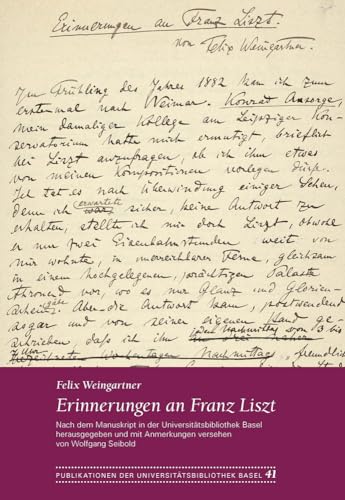 Erinnerungen an Franz Liszt.
von Felix Weingartner.
Im Frühling des Jahres 1882 kam ich zum
erstenmal nach Weimar. Konrad Ansorge,
mein damaliger Kollege am Leipziger Kon-
servatorium hatte mich ermutigt, brieflich
bei Liszt anzufragen, ob ich ihm etwas
von meinen Kompositionen vorlegen dürfe.
Ich tat es nach Überwindung einiger Scheu,
denn ich erwartete sicher, keine Antwort zu
erhalten, stellte ich mir doch Liszt, obwohl
er nur zwei Eisenbahnstunden weit von
mir wohnte, in unerreichbarer Ferne, gleichsam
in einem hochgelegenen, prächtigen Palaste
thronend vor, wo es nur Glanz und Glorien-
gäbe. Aber die Antwort kam, postwendend
sogar und von seiner eigenen Hand ge-
schrieben, dass ich ihn
den Nachmittag von 3 bis
Nachmittags, freundlich
Felix Weingartner
Erinnerungen an Franz Liszt
Nach dem Manuskript in der Universitätsbibliothek Basel
herausgegeben und mit Anmerkungen versehen
von Wolfgang Seibold
PUBLIKATIONEN DER UNIVERSITÄTSBIBLIOTHEK BASEL 41